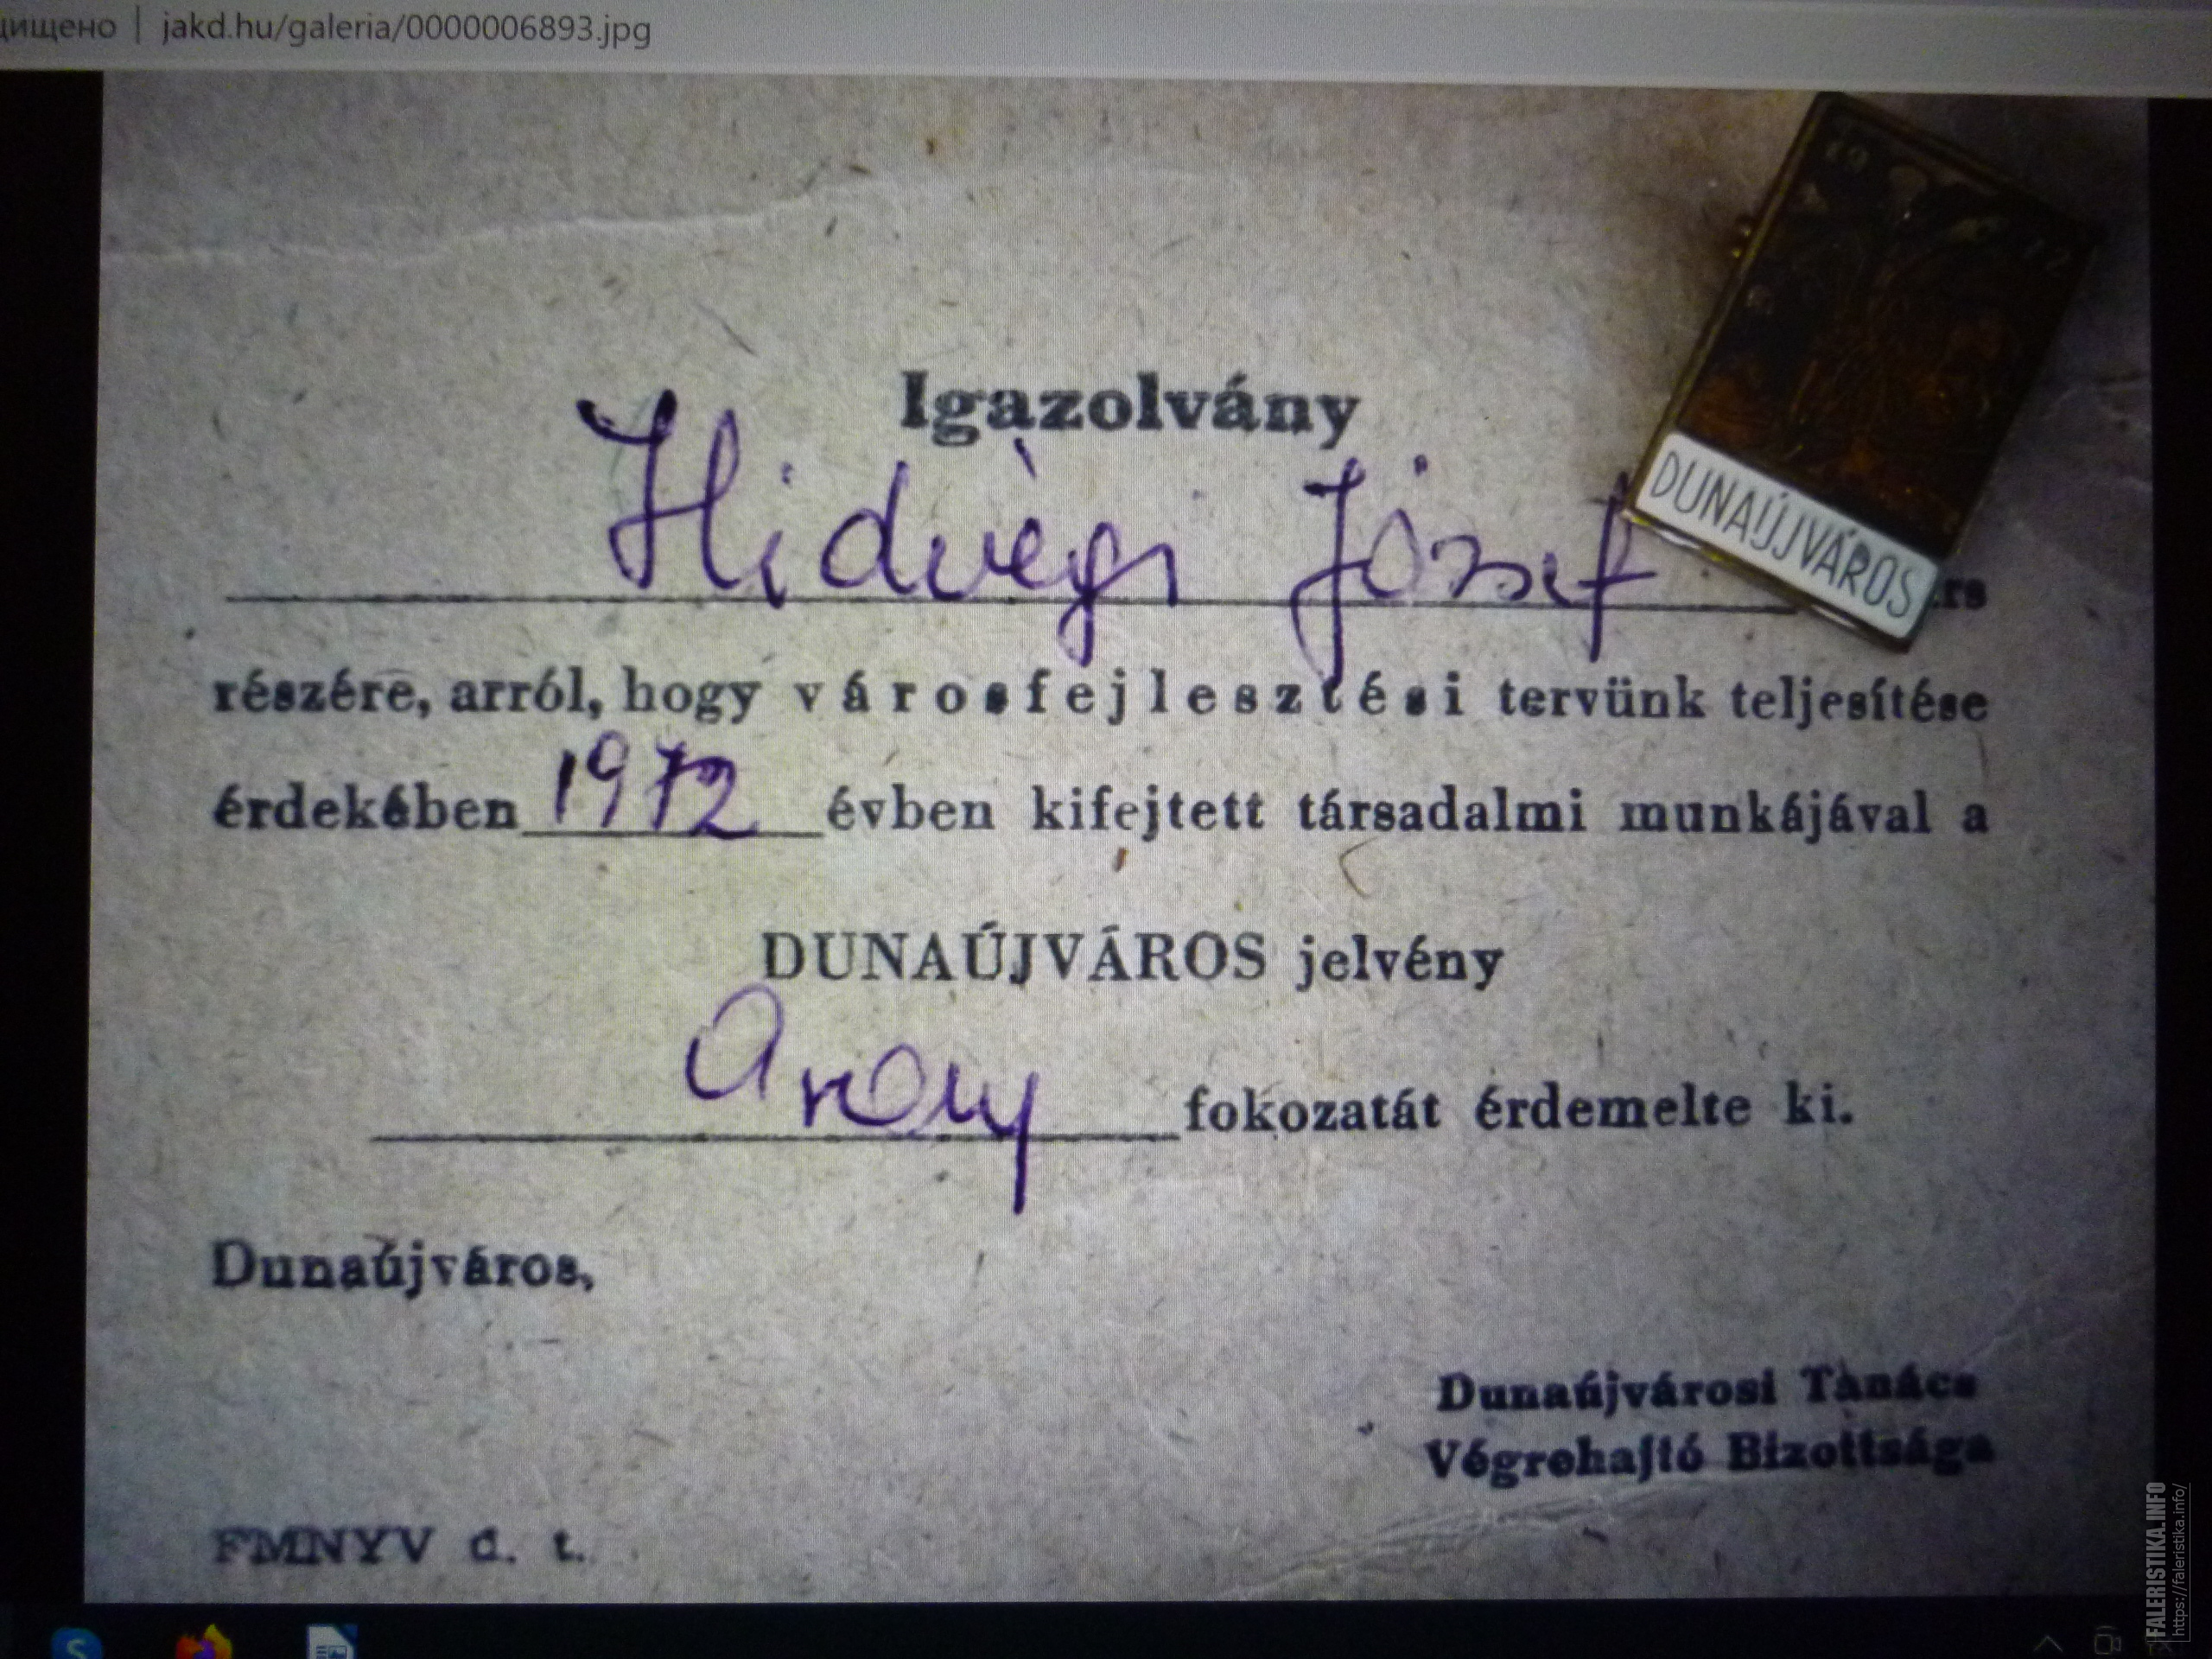 jakd.hu/galeria/0000006893.jpg
Igazolvány
Hidvègi József
részére, arról, hogy városfejlesztési tervünk teljesítése
érdekében 1972 évben kifejtett társadalmi munkájával a
DUNAÚJVÁROS jelvény
Arany fokozatát érdemelte ki.
Dunaújváros,
Dunaújvárosi Tanács
Végrehajtó Bizottsága
FMNYV d. t.
DUNAÚJVÁROS
FALERISTIKA.INFO
https://faleristika.info/